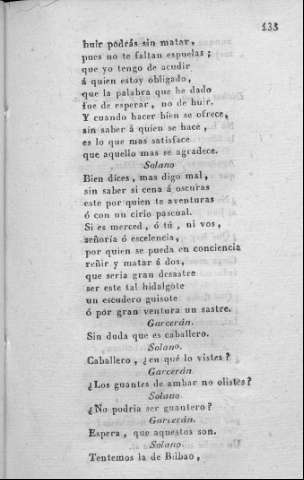 133
huir podrás sin matar,
pues no te faltan espuelas;
que yo tengo de acudir
á quien estoy obligado,
que la palabra que he dado
fue de esperar, no de huir.
Y cuando hacer bien se ofrece,
sin saber á quien se hace,
es lo que mas satisface
que aquello mas se agradece.
Solano
Bien dices, mas digo mal,
sin saber si cena á oscuras
este por quien te aventuras
ó con un cirio pascual.
Si es merced, ó tú, ni vos,
señoría ó escelencia,
por quien se pueda en conciencia
reñir y matar á dos,
que seria gran desastre
ser este tal hidalgote
un escudero guisote
ó por gran ventura un sastre.
Garcerán.
Sin duda que es caballero.
Solano.
Caballero, ¿en qué lo vistes?
Garcerán
¿Los guantes de ambar no olistes?
Solano
¿No podria ser guantero?
Garcerán.
Espera, que aquestos son.
Solano.
Tentemos la de Bilbao,